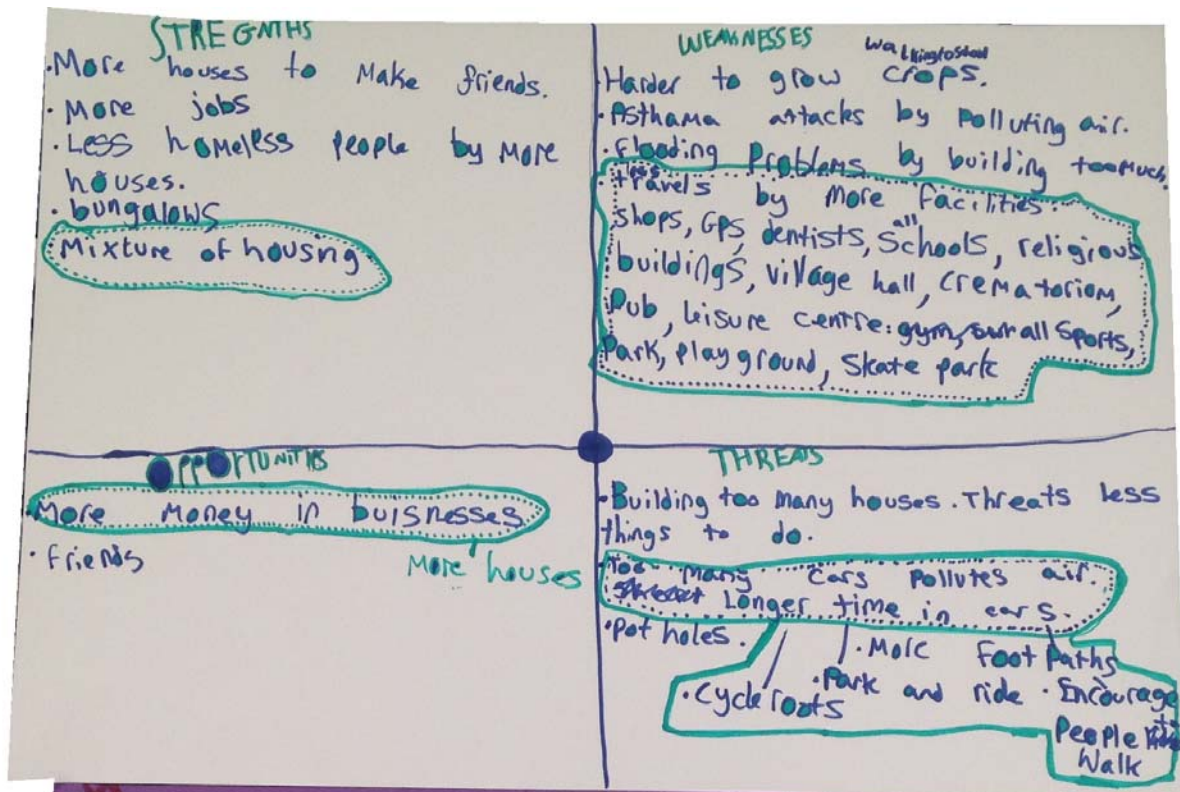 STREGNTHS
·More houses to make friends.
·More jobs
·Less homeless people by more
houses.
·bungalows
Mixture of housing
WEAKNESSES
walking to school
·Harder to grow crops.
·Asthama attacks by polluting air.
·flooding problems by building too much.
less
·travels by more facilities:
shops, GPs, dentists, all schools, religious
buildings, village hall, crematoriom,
Pub, leisure centre: gym, all sports,
Park, playground, skate park
OPPORTUNITIES
·More money in buisnesses
·friends
More houses
THREATS
·Building too many houses. Threats less
things to do.
·too many cars pollutes air.
Longer time in cars.
·pot holes.
·More foot paths
·Park and ride
·Cycle roots
·Encourage
People to
Walk